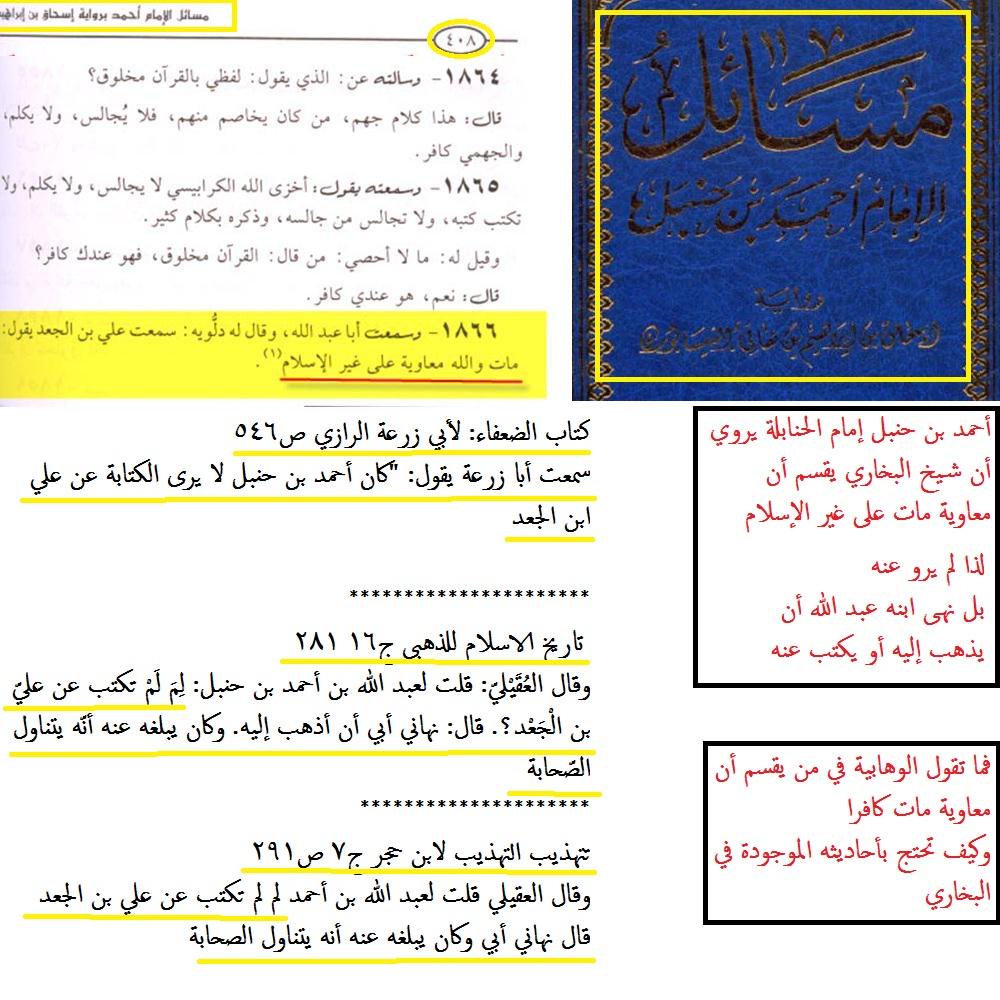 مسائل الإمام أحمد برواية إسحاق بن إبراهيم
٤٠٨
١٨٦٤- وسألته عن: الذي يقول: لفظي بالقرآن مخلوق؟
قال: هذا كلام جهم، من كان يخاصم منهم، فلا يُجالس، ولا يكلم،
والجهمي كافر.
١٨٦٥- وسمعته يقول: أخزى الله الكرابيسي لا يجالس، ولا يكلم، ولا
تكتب كتبه، ولا تجالس من جالسه، وذكره بكلام كثير.
وقيل له: ما لا أحصي: من قال: القرآن مخلوق، فهو عندك كافر؟
قال: نعم، هو عندي كافر.
١٨٦٦- وسمعت أبا عبد الله، وقال له دلُّويه: سمعت علي بن الجعد يقول:
مات والله معاوية على غير الإسلام(١).
مسائل
الإمام أحمد بن حنبل
رواية
إسحاق بن إبراهيم بن هانئ النيسابوري
أحمد بن حنبل إمام الحنابلة يروي
أن شيخ البخاري يقسم أن
معاوية مات على غير الإسلام
لذا لم يرو عنه
بل نهى ابنه عبد الله أن
يذهب إليه أو يكتب عنه
كتاب الضعفاء: لأبي زرعة الرازي ص٥٤٦
سمعت أبا زرعة يقول: "كان أحمد بن حنبل لا يرى الكتابة عن علي
ابن الجعد
**********************
تاريخ الاسلام للذهبي ج١٦ ٢٨١
وقال العُقَيْليّ: قلت لعبد الله بن أحمد بن حنبل: لِمَ لَمْ تكتب عن عليّ
بن الْجَعْد؟. قال: نهاني أبي أن أذهب إليه. وكان يبلغه عنه أنّه يتناول
الصّحابة
*********************
تتهذيب التهذيب لابن حجر ج٧ ص٢٩١
وقال العقيلي قلت لعبد الله بن أحمد لم لم تكتب عن علي بن الجعد
قال نهاني أبي وكان يبلغه عنه أنه يتناول الصحابة
فما تقول الوهابية في من يقسم أن
معاوية مات كافرا
وكيف تحتج بأحاديثه الموجودة في
البخاري